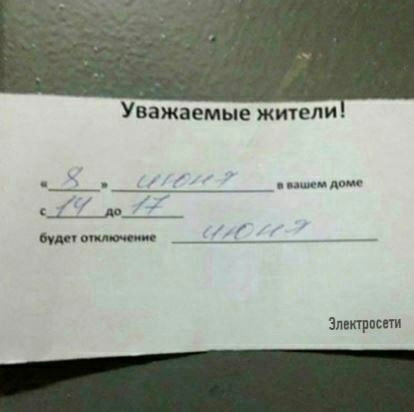 Уважаемые жители!
« 8 » июня в вашем доме
с 14 до 17
будет отключение июня
Электросети